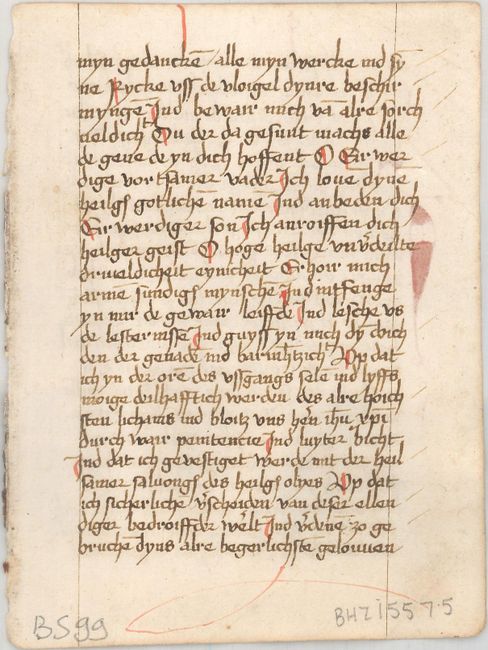 myn gedancke̅ alle myn wercke ind sy
ne Rycke uss de vloigel dynre beschir
mynge̅ Ind bewair mich va̅ alre sorch
ueldich Du der da gesunt machs alle
de gene de yn dich hoffent O Eirwer
dige vortsamer vader Ich loue dyne̅
heilgs gotliche̅ name Ind anbeden dich
Eirwerdiger son Ich anroiffen dich
heilger geist O hoge heilge vnv̅deilte
driueldicheit eynicheit Erhoir mich
arme̅ sundigs mynsche̅ Ind intfenge
yn mir de gewair leiffde Ind lesche vs
de besternisse Ind guyff yn mich dy̅ doich
den der genade̅ ind barmhtzich Op dat
ich yn der ore̅ des vssgangs selen ind lyffs
moige deilhafftich werden des alre hoich
sten lichams ind bloitz vns he̅n ih̅u xpi
durch wair penitencie Ind luyter bicht
Ind dat ich gevestiget werde mit der heil
samer saluongs des heilgs olyes Op dat
ich sicherliche v̅scheiden van deser ellen
diger bedroiffder welt Ind v̅dene̅ zo ge
bruche̅ dyns alre begerlichste̅ gelouuen
BS99
BHZ 155 7.5